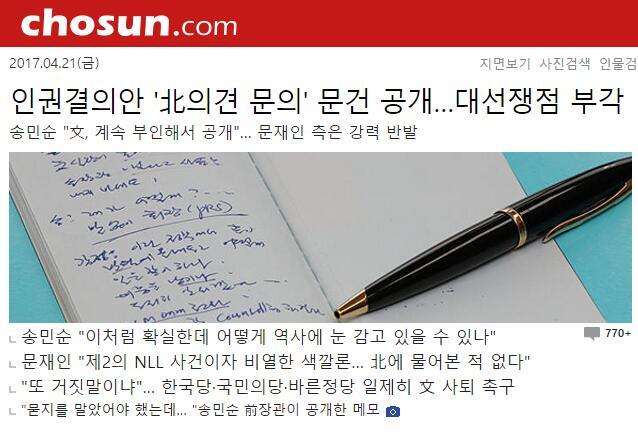 chosun.com
2017.04.21(금) 지면보기 사진검색 인물검
인권결의안 '北의견 문의' 문건 공개...대선쟁점 부각
송민순 "文, 계속 부인해서 공개"... 문재인 측은 강력 반발
송민순 "이처럼 확실한데 어떻게 역사에 눈 감고 있을 수 있나" 770+
문재인 "제2의 NLL 사건이자 비열한 색깔론... 北에 물어본 적 없다"
"또 거짓말이냐"... 한국당·국민의당·바른정당 일제히 文 사퇴 촉구
"묻지를 말았어야 했는데... "송민순 前장관이 공개한 메모